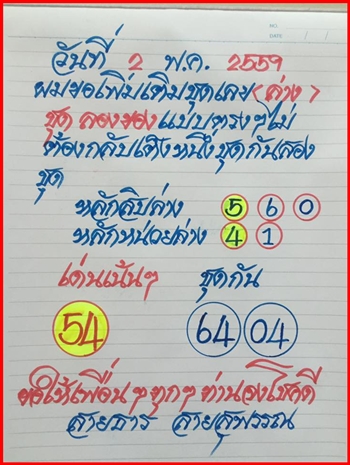 NO.
DATE
วันที่ 2 พ.ค. 2559
ผมขอเพิ่มเติมชุดเลข (ล่าง)
ชุด ลองของ แบบตรงๆไม่
ต้องกลับเต็งหนึ่งชุดกันสอง
ชุด
หลักสิบล่าง 5 6 0
หลักหน่วยล่าง 4 1
เด่นเน้นๆ ชุดกัน
54 64 04
ขอให้เพื่อนๆทุกๆท่านจงโชคดี
สายธาร สายสุพรรณ